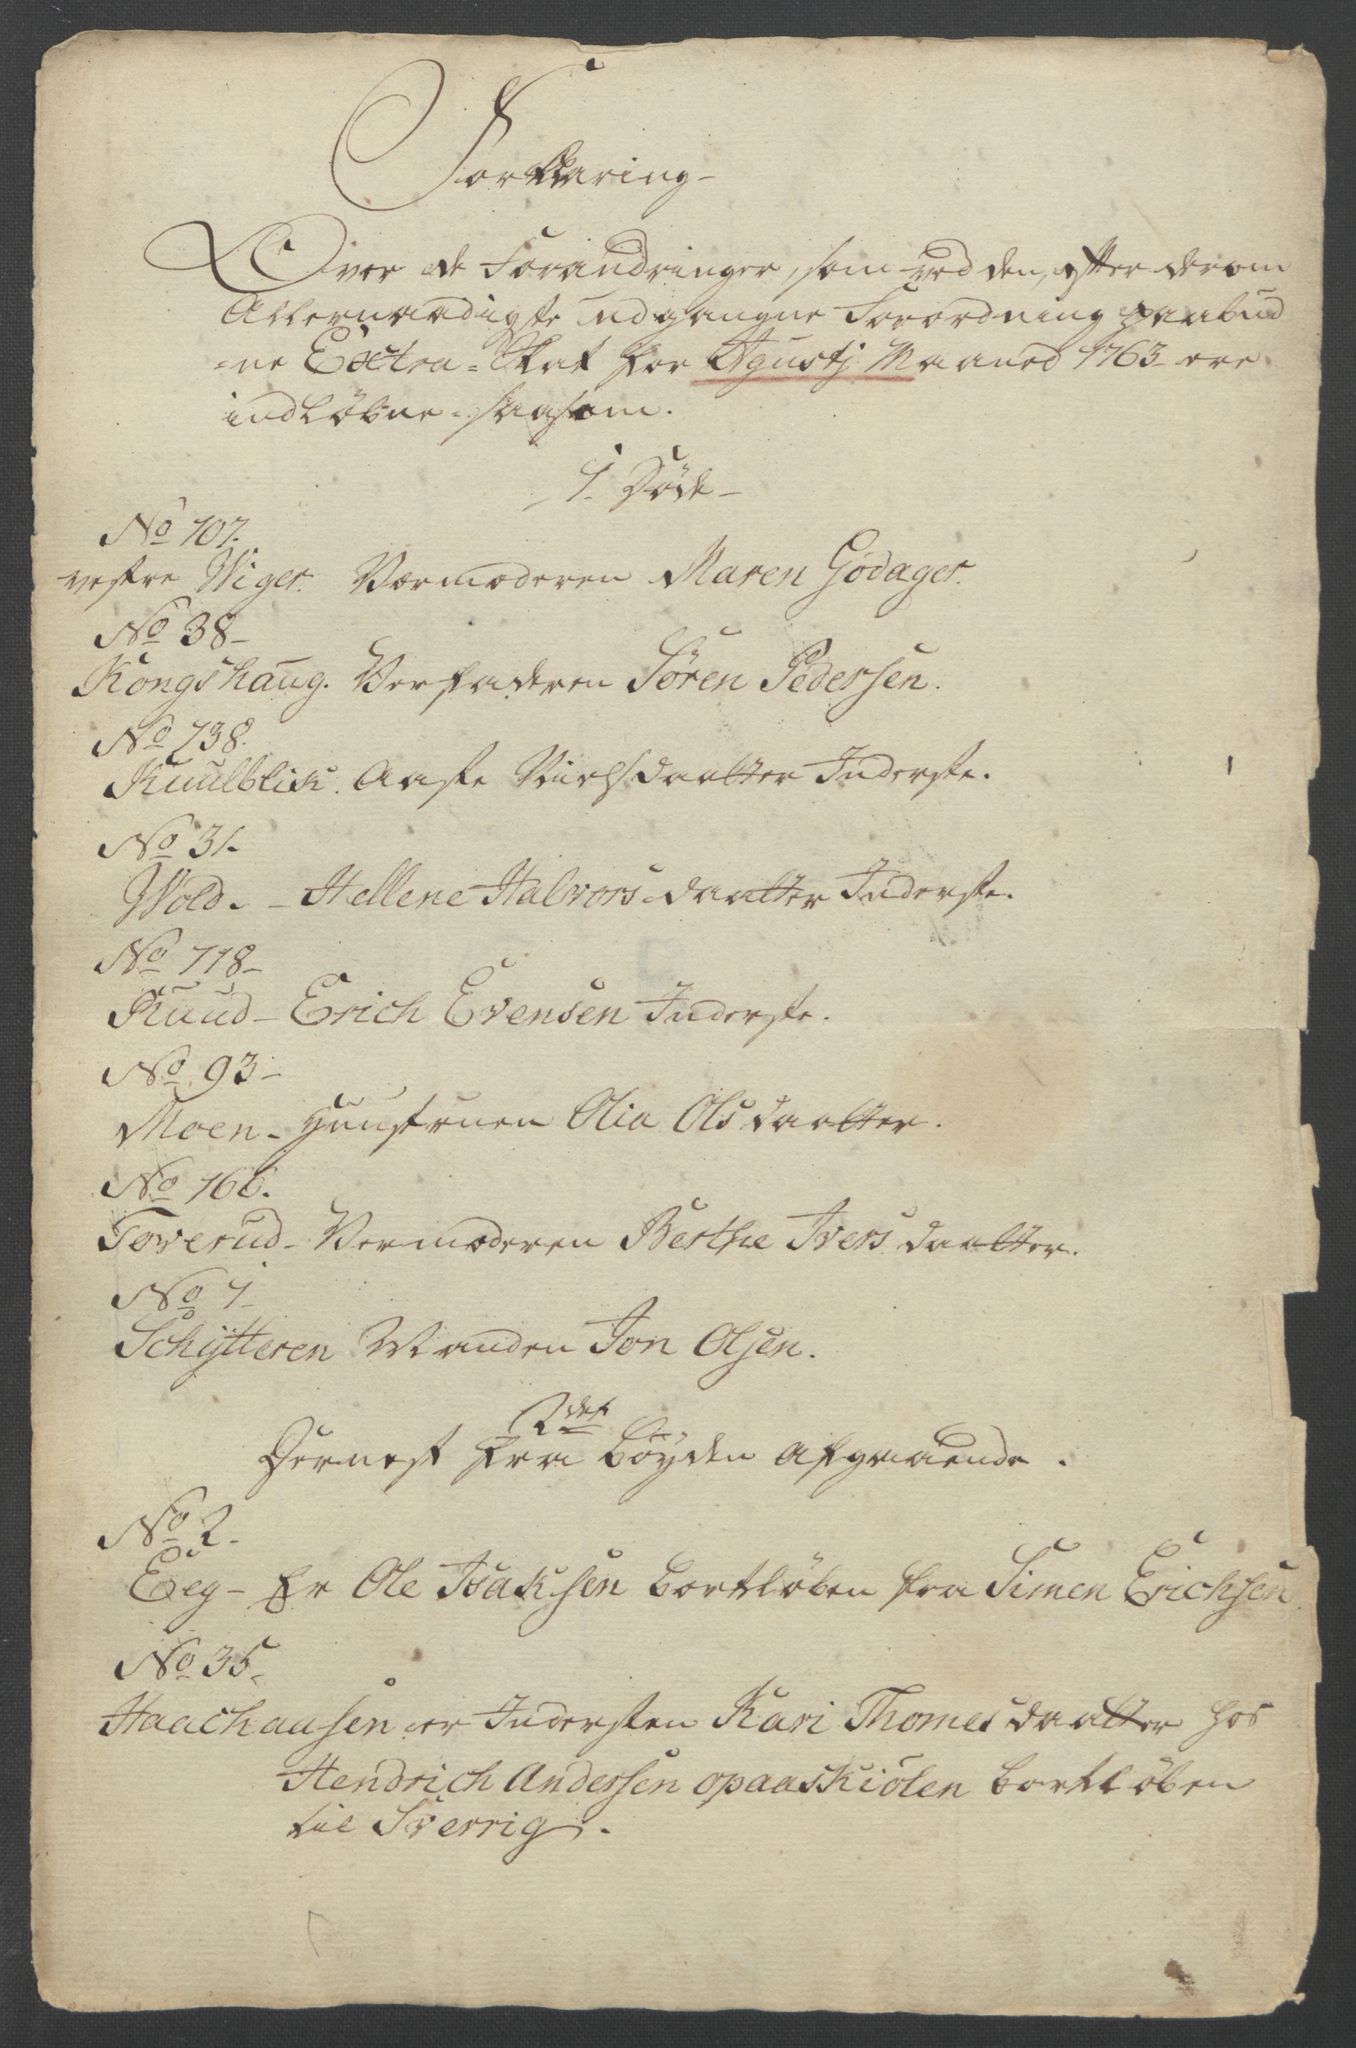 Forklaring
Over de Forandringer, som ved den, efter derom
Allernaadigste udgangne Forordning paabud
-ne Extra-Skat for Agustj Maaned 1763 ere
indløbne - saasom.
1. Døde
No 107.
vestre Wiger. Vermoderen Maren Godager.
No 38
Kongshaug. Verfaderen Søren Pedersen.
No 138.
Kuulblik. Aaste Nielsdaatter Inderste.
No 31.
Wold. - Hellene Halvorsdaatter Inderste.
No 118
Ruud - Erich Evensen Inderste.
No 93
Moen - Huustruen Olia Olsdaatter.
No 166.
Toverud - Vermoderen Berthe Ivers daatter.
No 1
Schÿtteren Manden Jon Olsen.
2det
Dernest fra Bøyden Afgaaende.
No 2.
Eeg - Er Ole Isaksen bortløben fra Simen Erichsen
No 35
Haachausen er Indersten Kari Thomesdaatter hos
Hendrich Andersen opaaskiølen bortløben
til Sverrig.